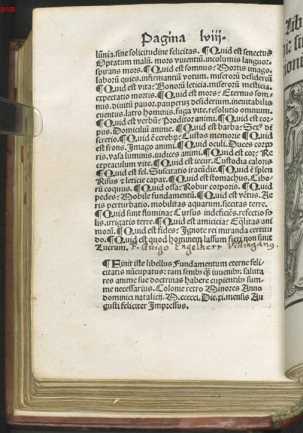 Pagina lviij.
lūnia. sine solicitudine felicitas. ¶ Quid est senectus
Optatum malū. mors viuentiū. incolumis languor.
spirans mors. ¶ Quid est somnus: Mortis imago.
laborū quies. infirmantiū votum. miserorū desideriū
¶ Quid est vita: Bonorū leticia. miserorū mesticia.
expectatio mortis. ¶ Quid est mors: Eternus som⸗
nus. diuitū pauor. pauperū desiderium. ineuitabilis
euentus. latro hominis. fuga vite. resolutio omnium.
¶ Quid est verbū: Proditor animi. ¶ Quid est cor⸗
pus. Domiciliū anime. ¶ Quid est barba: Sexꝰ di
scretio. ¶ Quid ē cerebrū: Custos memorie ¶ Quid
est frons. Imago animi. ¶ Quid oculi. Duces corpo
ris. vasa luminis. iudices animi. ¶ Quid est cor: Re
ceptaculum vite. ¶ Quid est iecur. Custodia caloris
¶ Quid est fel. Suscitatio iracūdie. ¶ Quid ē splen
Risus ⁊ leticie capax. ¶ Quid est stomachus. Cibo⸗
rū coquus. ¶ Quid ossa: Robur corporis. ¶ Quid
pedes: Mobile fundamentū. ¶ Quid est vētus. Ae
ris perturbatio. mobilitas aquarum. siccitas terre.
¶ Quid sunt flumina: Cursus indeficiēs. refectio so
lis. irrigatio terre ¶ Quid est amicicia: Eq̄litas ani
morū. ¶ Quid est fides: Ignote rei miranda certitu
do. ¶ Quid est quod hominem lassum fieri non sinit
Lucrum.
¶ Finit iste libellus Fundamentum eterne feli⸗
citatis nūcupatus: tam
res anime sue doctrinas habere cupientibꝰ sum⸗
me necessarius. Colonie retro Minores Anno
dominice natalicij. M.ccccci. Die. xi. mensis Au
gusti feliciter Impressus.